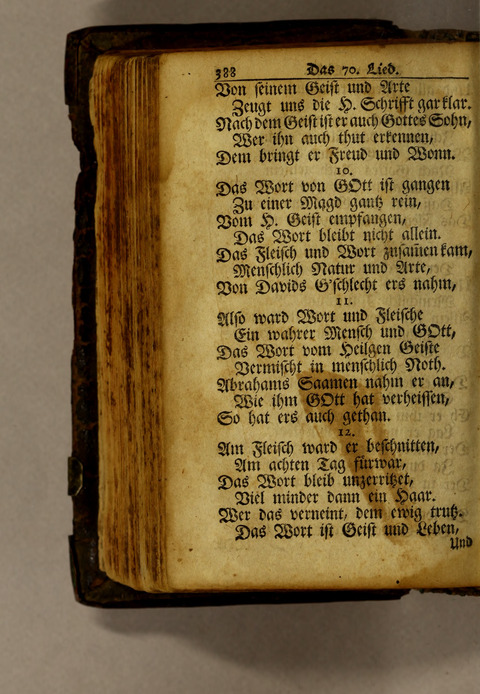 388 Das 70. Lied.
Von seinem Geist und Arte
Zeugt uns die H. Schrifft gar klar.
Nach dem Geist ist er auch Gottes Sohn,
Wer ihn auch thut erkennen,
Dem bringt er Freud und Wonn.
10.
Das Wort von GOtt ist gangen
Zu einer Magd gantz rein,
Vom H. Geist empfangen,
Das Wort bleibt nicht allein.
Das Fleisch und Wort zusam̃en kam,
Menschlich Natur und Arte,
Von Davids G'schlecht ers nahm,
11.
Also ward Wort und Fleische
Ein wahrer Mensch und GOtt,
Das Wort vom Heilgen Geiste
Vermischt in menschlich Noth.
Abrahams Saamen nahm er an,
Wie ihm GOtt hat verheissen,
So hat ers auch gethan.
12.
Am Fleisch ward er beschnitten,
Am achten Tag fürwar,
Das Wort bleib unzerritzet,
Viel minder dann ein Haar.
Wer das verneint, dem ewig trutz.
Das Wort ist Geist und Leben,
Und